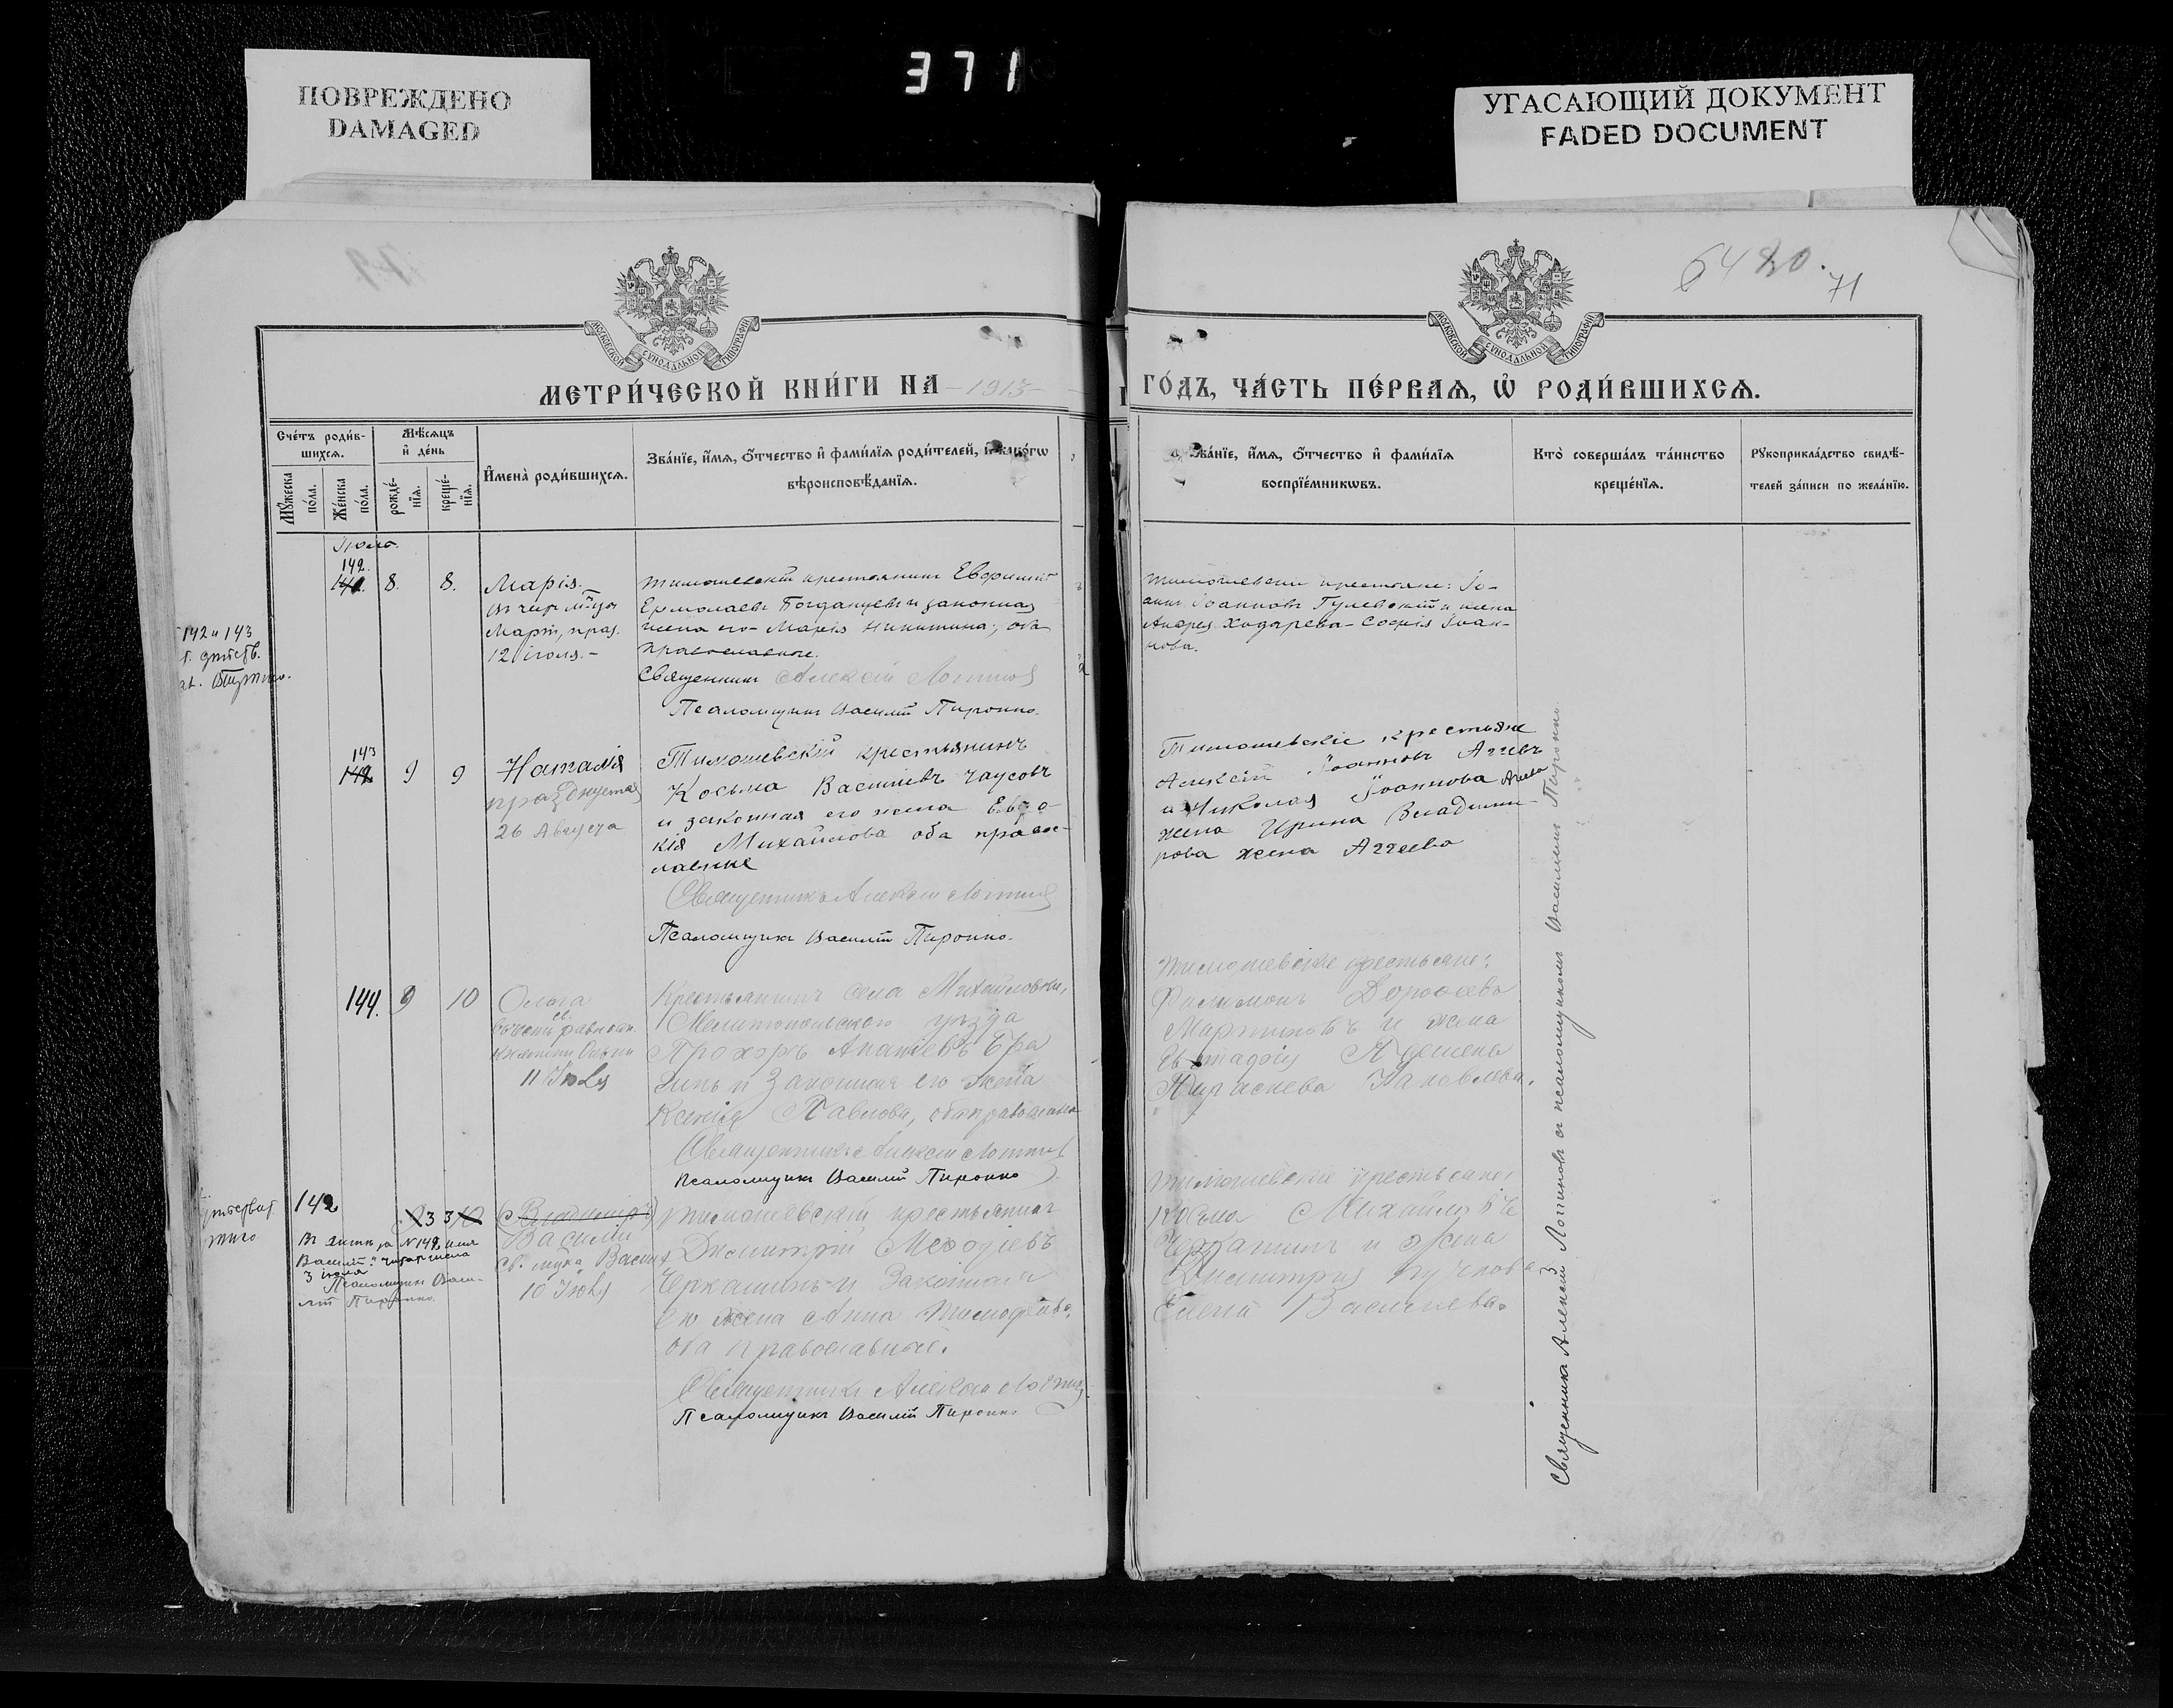 371
ПОВРЕЖДЕНО
DAMAGED
УГАСАЮЩИЙ ДОКУМЕНТ
FADED DOCUMENT
71
МОСКОВСКОЙ СѴНОДАЛЬНОЙ ТИПОГРАФІИ
МОСКОВСКОЙ СѴНОДАЛЬНОЙ ТИПОГРАФІИ
МЕТРИ́ЧЕСКОЙ КНИ́ГИ НА 1913
ГО́ДЪ, ЧА́СТЬ ПЕ́РВАЯ, Ѡ҆ РОДИ́ВШИХСЯ.
Сче́тъ роди́в-
шихся.
Мꙋжеска по́ла.
Же́нска по́ла.
Мѣ́сяцъ
и҆ де́нь
рожде́-
нїя.
креще́-
нїя.
И҆мена̀ роди́вшихся.
Зва́нїе, и҆́мя, ѻ҆́тчество и҆ фами́лїя роди́телей, и҆ како́гѡ
вѣроисповѣ́данїя.
Зва́нїе, и҆́мя, ѻ҆́тчество и҆ фами́лїя
воспрїе́мникѡвъ.
Кто̀ соверша́лъ та́инство
креще́нїя.
Рꙋкоприкла́дство свидѣ́-
телей за́писи по жела́нїю.
142.
8. 8. Марія.
Март, праз.
12 іюля.
142 и 143
Тимошевскій крестьянинъ Евфимій
Ермолаевъ Богданцевъ и законная
жена его Марія Никитина, оба
православные.
Священникъ Алексій Логиновъ
Псаломщикъ Василій Пиронко.
Тимошевскіе крестьяне: Іо-
аннъ Іоанновъ Гулевскій и жена
Андрея Ходарева Софія Іоан-
нова.
143
9 9 Наталія
празднуется
26 Августа
Тимошевскій крестьянинъ
Косьма Васильевъ Чаусовъ
и законная его жена Евдо-
кія Михайлова оба право-
славные
Священникъ Алексій Логиновъ
Псаломщикъ Василій Пиронко.
Тимошевскіе крестьяне
Алексій Іоанновъ Агеевъ
и Николая Іоаннова
жена Ирина Владими-
рова жена Аггеева
144. 9 10 Ольга
въ честь равноап.
княгини Ольги
11 Іюля
Крестьянинъ села Михайловки,
Мелитопольскаго уѣзда
Прохоръ Ананіевъ Бра
гинъ и Законная его жена
Ксенія Павлова, оба православные
Священникъ Алексій Логиновъ
Псаломщикъ Василій Пиронко
Тимошевскіе крестьяне:
Филимонъ Дороѳеевъ
Мартиновъ и жена
142
3 3
Владиміръ
Василій
св. муч. Василія
10 Іюля
Въ записи за № 142 имя
Василій читать числа
3 іюля
Псаломщикъ Васи-
лій Пиронко.
Тимошевскій крестьянинъ
Димитрій Меѳодіевъ
Черкашинъ и Законная
его жена Анна Тимофеева,
оба православные.
Священникъ Алексій Логиновъ
Псаломщикъ Василій Пиронко
Тимошевскіе крестьяне:
Косьма Михайловъ
Черкашинъ и жена
Димитрія
Елена Васильева.
Священникъ Алексій Логиновъ съ псаломщикомъ Василіемъ Пиронко.